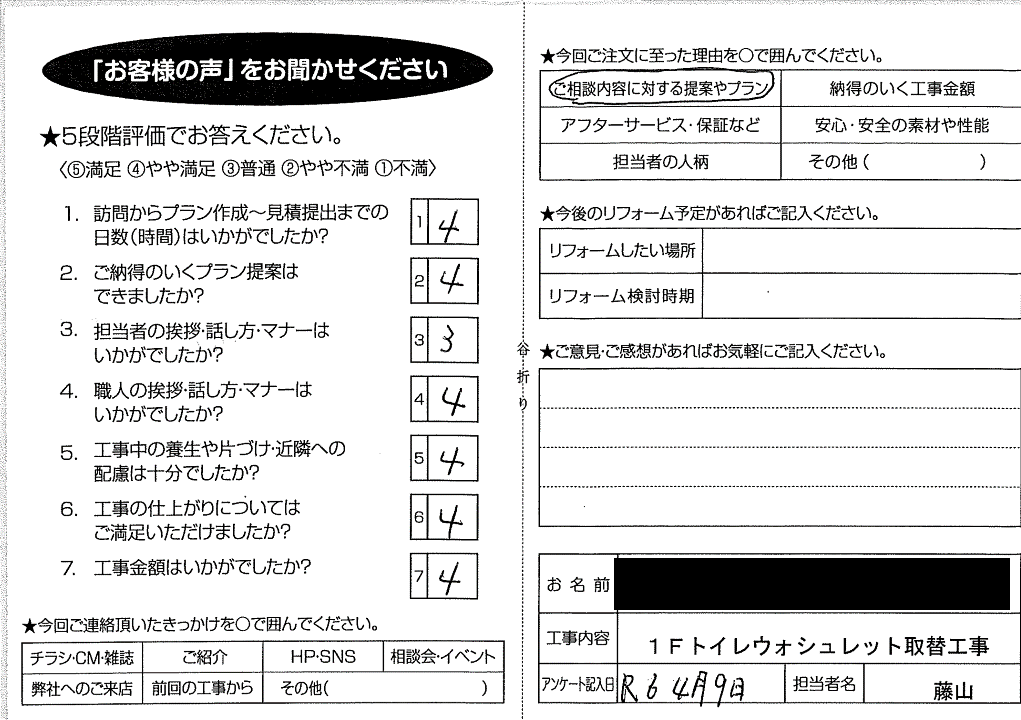 「お客様の声」をお聞かせください
★5段階評価でお答えください。
〈⑤満足 ④やや満足 ③普通 ②やや不満 ①不満〉
1. 訪問からプラン作成～見積提出までの
日数(時間)はいかがでしたか?
1 4
2. ご納得のいくプラン提案は
できましたか?
2 4
3. 担当者の挨拶・話し方・マナーは
いかがでしたか?
3 3
4. 職人の挨拶・話し方・マナーは
いかがでしたか?
4 4
5. 工事中の養生や片づけ・近隣への
配慮は十分でしたか?
5 4
6. 工事の仕上がりについては
ご満足いただけましたか?
6 4
7. 工事金額はいかがでしたか?
7 4
★今回ご連絡頂いたきっかけを○で囲んでください。
チラシ・CM・雑誌 ご紹介 HP・SNS 相談会・イベント
弊社へのご来店 前回の工事から その他( )
谷折り
★今回ご注文に至った理由を○で囲んでください。
ご相談内容に対する提案やプラン 納得のいく工事金額
アフターサービス・保証など 安心・安全の素材や性能
担当者の人柄 その他( )
★今後のリフォーム予定があればご記入ください。
リフォームしたい場所
リフォーム検討時期
★ご意見・ご感想があればお気軽にご記入ください。
お名前
工事内容 1Fトイレウォシュレット取替工事
アンケート記入日 R6 4月9日 担当者名 藤山